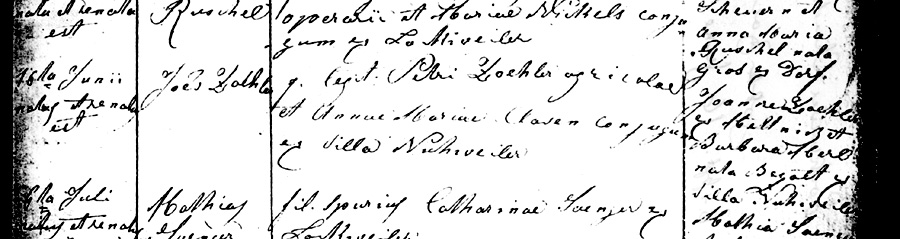 nata et renata
est
Ruschel
operarii et Mariae Nickels conju
gum ex Lottweiler
Scheuern et
Anna Maria
Ruschel nata
Gros ex Dorf.
18ta Junii
natus et renatus
est
Joes Loehle
g. legit. Petri Loehler agricolae
et Annae Mariae Clasen conjugum
ex villa Nuhweiler
Joanne Loehler
ex Mettnich et
Barbara Merl
nata Begolt ex
villa Nuhweiler
6ta Juli
natus et renatus
Mathias
Saenger
fil. spurius Catharinae Saenger ex
Lottweiler
Mathia Saenger